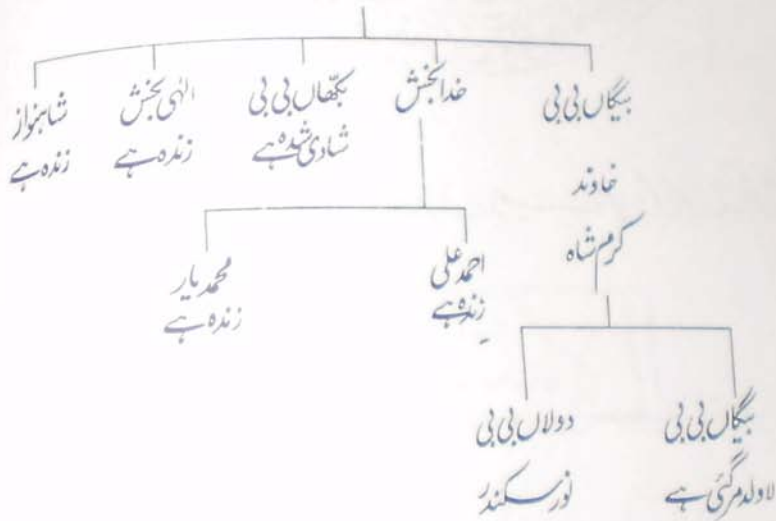 بیگاں بی بی
خاوند
کرم شاہ
خدابخش
بکھاں بی بی
شادی شدہ ہے
الٰہی بخش
زندہ ہے
شاہنواز
زندہ ہے
احمد علی
زندہ ہے
محمد یار
زندہ ہے
بیگاں بی بی
لاولد مرگئی ہے
دولاں بی بی
نور سکندر